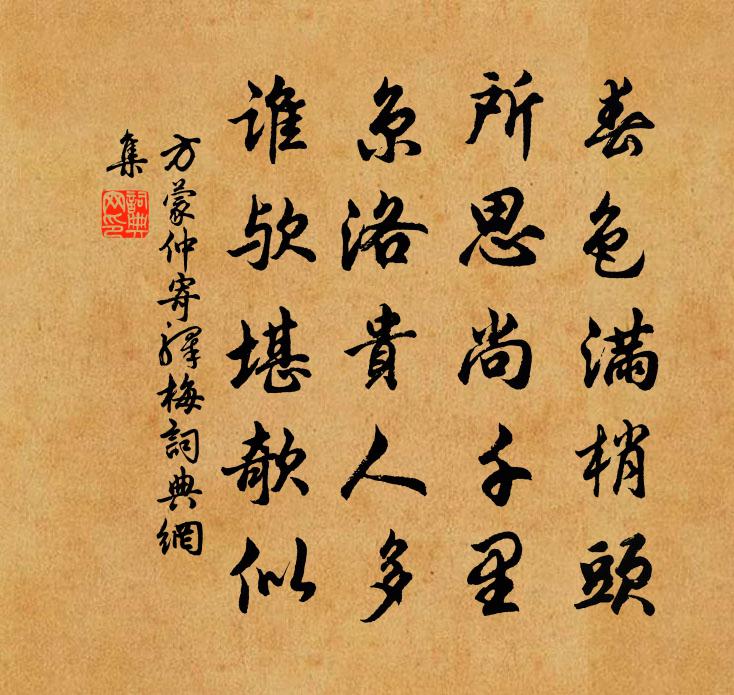 春色滿梢頭
所思尚千里
京洛貴人多
誰欤堪欹似
方蒙仲寄驛梅詞典網
集
詞典
网印